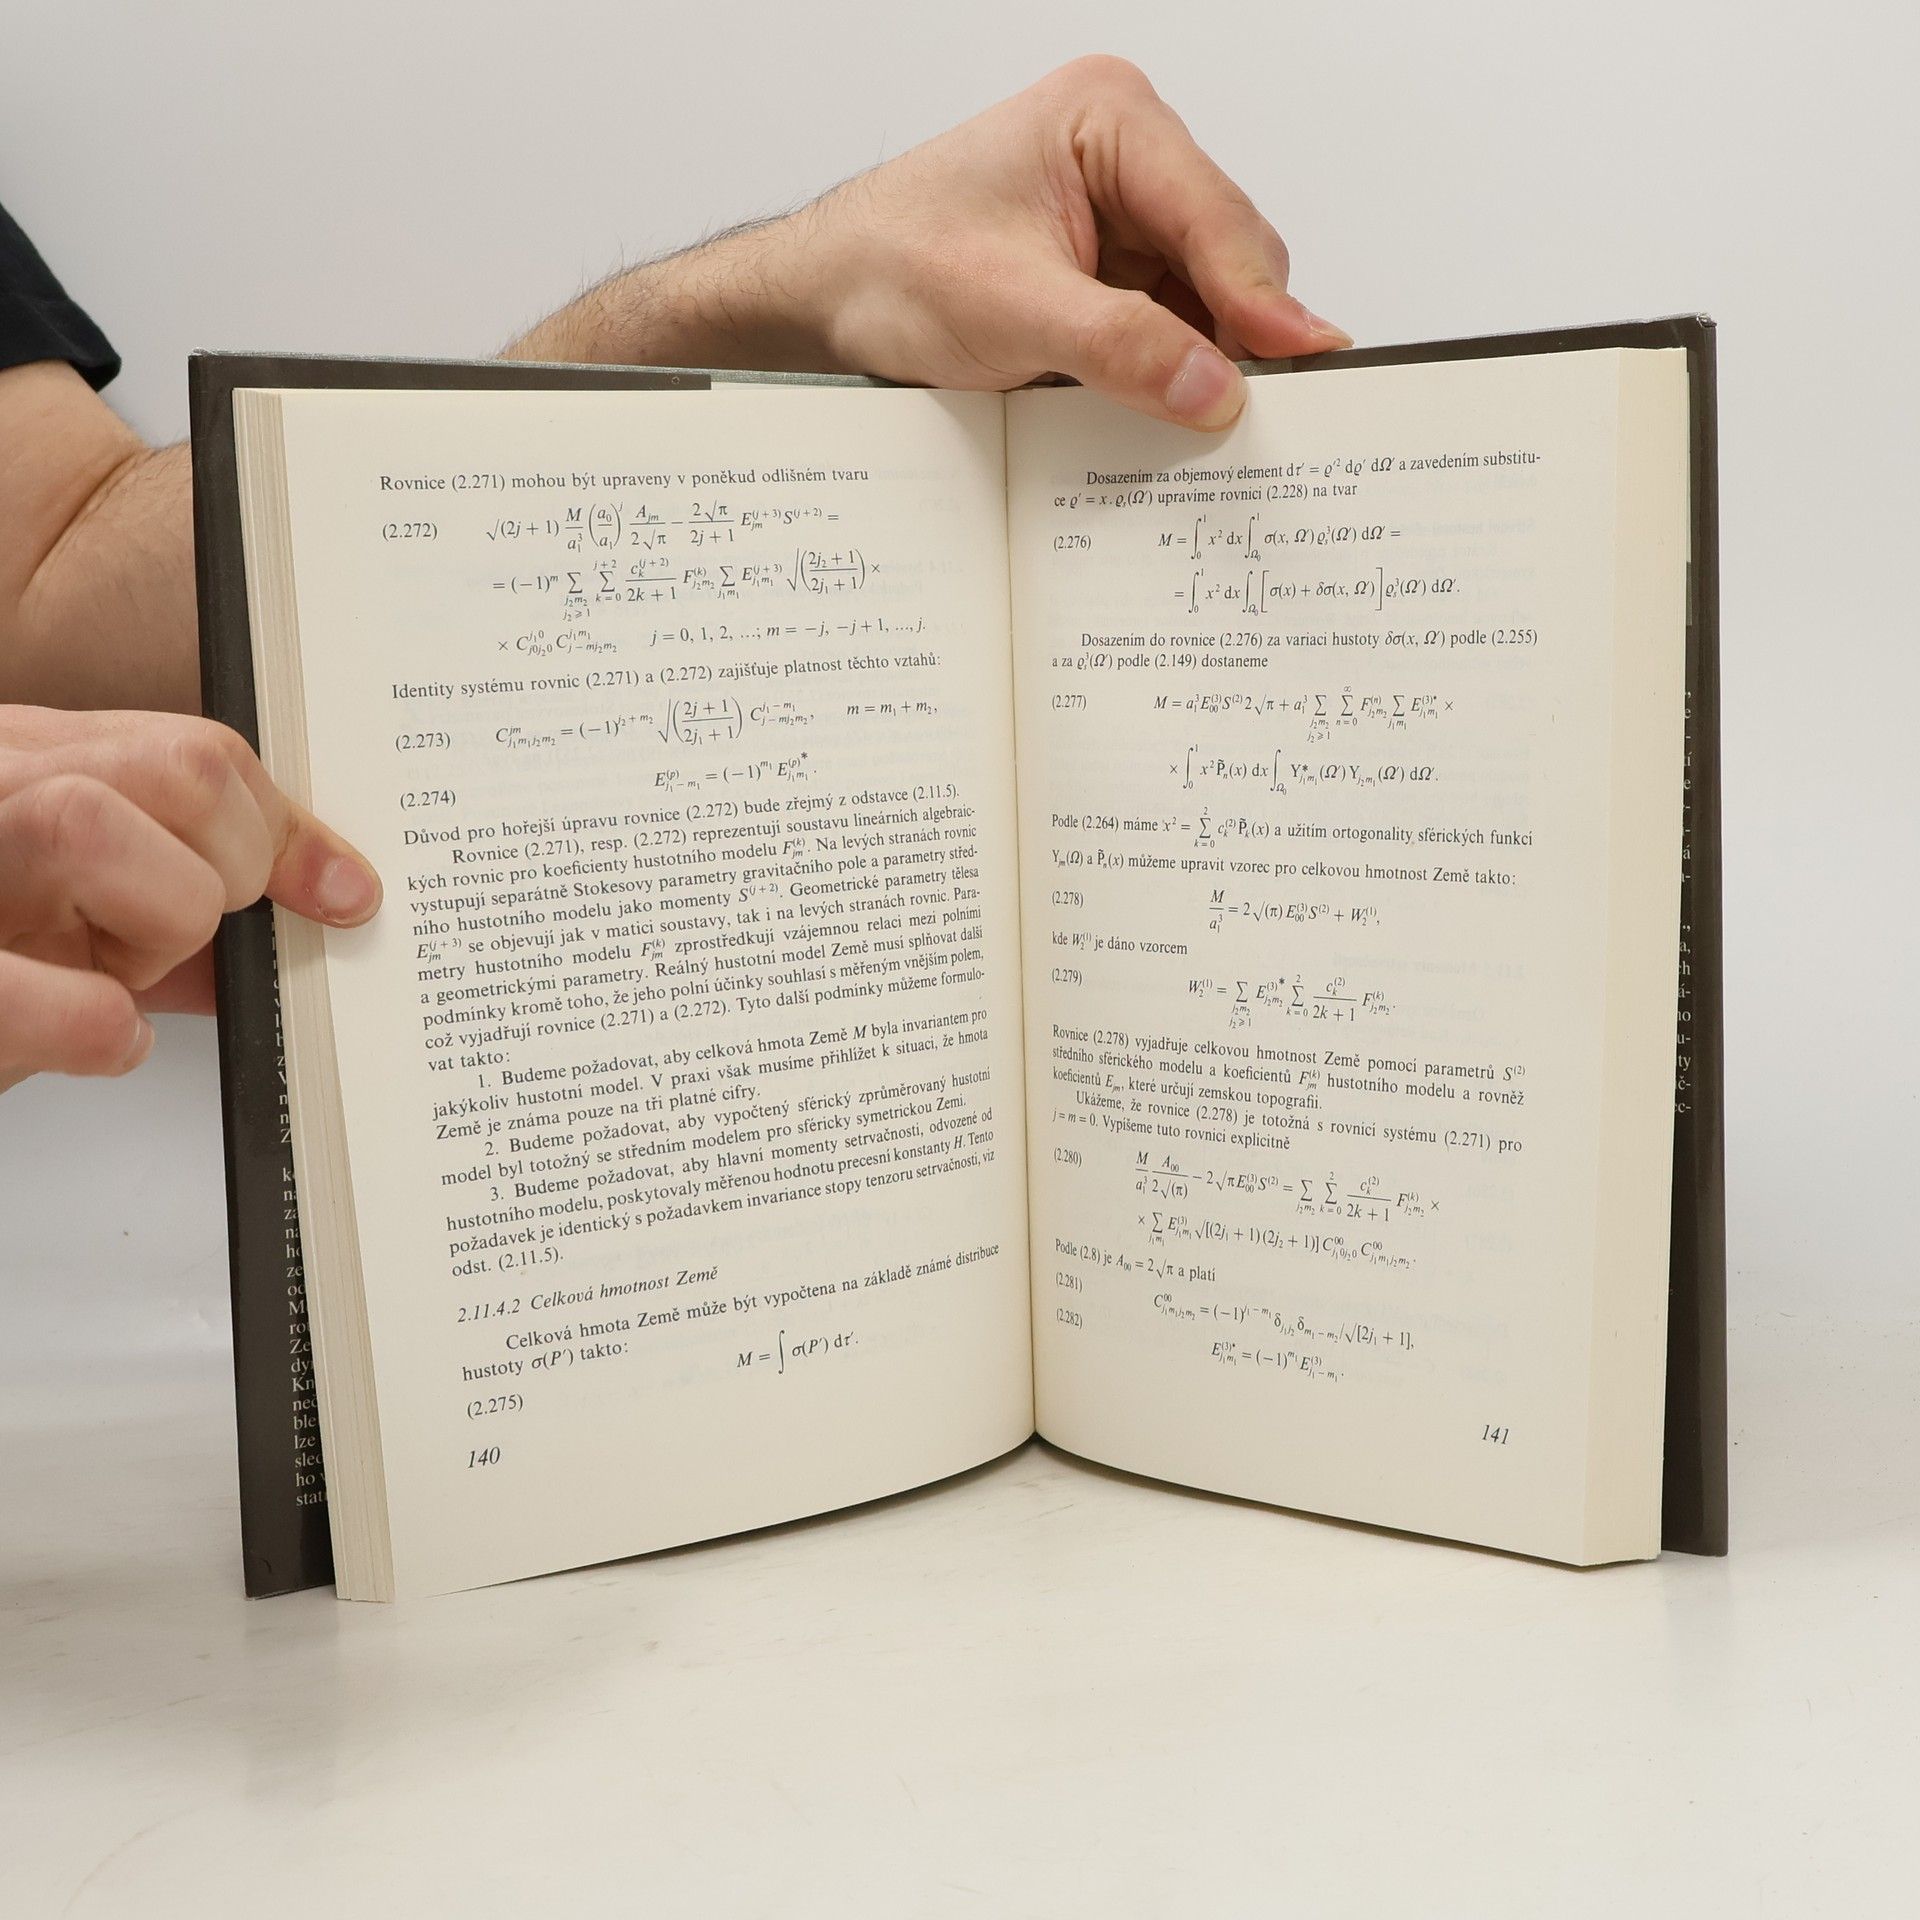 Rovnice (2.271) mohou být upraveny v poněkud odlišném tvaru
(2.272) √(2j + 1) M/a₁³ (a₀/a₁)^j A_jm/(2√π) − 2√π/(2j + 1) E_jm^(j+3) S^(j+2) =
= (−1)^m ∑_{j₂m₂, j₂≥1} ∑_{k=0}^{j+2} c_k^(j+2)/(2k + 1) F_{j₂m₂}^(k) ∑_{j₁m₁} E_{j₁m₁}^(j+3) √((2j₂ + 1)/(2j₁ + 1)) ×
× C_{j0j₂0}^{j₁0} C_{j−mj₂m₂}^{j₁m₁} j = 0, 1, 2, ...; m = −j, −j + 1, ..., j.
Identity systému rovnic (2.271) a (2.272) zajišťuje platnost těchto vztahů:
(2.273) C_{j₁m₁j₂m₂}^{jm} = (−1)^{j₂+m₂} √((2j + 1)/(2j₁ + 1)) C_{j−mj₂m₂}^{j₁−m₁}, m = m₁ + m₂,
(2.274) E_{j₁−m₁}^(p) = (−1)^{m₁} E_{j₁m₁}^{(p)*}.
Důvod pro hořejší úpravu rovnice (2.272) bude zřejmý z odstavce (2.11.5).
Rovnice (2.271), resp. (2.272) reprezentují soustavu lineárních algebraic-
kých rovnic pro koeficienty hustotního modelu F_jm^(k). Na levých stranách rovnic
vystupují separátně Stokesovy parametry gravitačního pole a parametry střed-
ního hustotního modelu jako momenty S^(j+2). Geometrické parametry tělesa
E_jm^(j+3) se objevují jak v matici soustavy, tak i na levých stranách rovnic. Para-
metry hustotního modelu F_jm^(k) zprostředkují vzájemnou relaci mezi polními
a geometrickými parametry. Reálný hustotní model Země musí splňovat další
podmínky kromě toho, že jeho polní účinky souhlasí s měřeným vnějším polem,
což vyjadřují rovnice (2.271) a (2.272). Tyto další podmínky můžeme formulo-
vat takto:
1. Budeme požadovat, aby celková hmota Země M byla invariantem pro
jakýkoliv hustotní model. V praxi však musíme přihlížet k situaci, že hmota
Země je známa pouze na tři platné cifry.
2. Budeme požadovat, aby vypočtený sférický zprůměrovaný hustotní
model byl totožný se středním modelem pro sféricky symetrickou Zemi.
3. Budeme požadovat, aby hlavní momenty setrvačnosti, odvozené od
hustotního modelu, poskytovaly měřenou hodnotu precesní konstanty H. Tento
požadavek je identický s požadavkem invariance stopy tenzoru setrvačnosti, viz
odst. (2.11.5).
2.11.4.2 Celková hmotnost Země
Celková hmota Země může být vypočtena na základě známé distribuce
hustoty σ(P′) takto:
(2.275) M = ∫ σ(P′) dτ′.
140
Dosazením za objemový element dτ′ = ϱ′² dϱ′ dΩ′ a zavedením substitu-
ce ϱ′ = x . ϱ_s(Ω′) upravíme rovnici (2.228) na tvar
(2.276) M = ∫₀¹ x² dx ∫_{Ω₀} σ(x, Ω′) ϱ_s³(Ω′) dΩ′ =
= ∫₀¹ x² dx ∫_{Ω₀} [σ(x) + δσ(x, Ω′)] ϱ_s³(Ω′) dΩ′.
Dosazením do rovnice (2.276) za variaci hustoty δσ(x, Ω′) podle (2.255)
a za ϱ_s³(Ω′) podle (2.149) dostaneme
(2.277) M = a₁³ E₀₀^(3) S^(2) 2√π + a₁³ ∑_{j₂m₂, j₂≥1} ∑_{n=0}^∞ F_{j₂m₂}^(n) ∑_{j₁m₁} E_{j₁m₁}^{(3)*} ×
× ∫₀¹ x² P̃_n(x) dx ∫_{Ω₀} Y*_{j₁m₁}(Ω′) Y_{j₂m₂}(Ω′) dΩ′.
Podle (2.264) máme x² = ∑_{k=0}^2 c_k^(2) P̃_k(x) a užitím ortogonality sférických funkcí
Y_jm(Ω) a P̃_n(x) můžeme upravit vzorec pro celkovou hmotnost Země takto:
(2.278) M/a₁³ = 2√(π) E₀₀^(3) S^(2) + W₂^(1),
kde W₂^(1) je dáno vzorcem
(2.279) W₂^(1) = ∑_{j₂m₂, j₂≥1} E_{j₂m₂}^{(3)*} ∑_{k=0}^2 c_k^(2)/(2k + 1) F_{j₂m₂}^(k).
Rovnice (2.278) vyjadřuje celkovou hmotnost Země pomocí parametrů S^(2)
středního sférického modelu a koeficientů F_jm^(k) hustotního modelu a rovněž
koeficientů E_jm, které určují zemskou topografii.
Ukážeme, že rovnice (2.278) je totožná s rovnicí systému (2.271) pro
j = m = 0. Vypíšeme tuto rovnici explicitně
(2.280) M/a₁³ A₀₀/(2√(π)) − 2√π E₀₀^(3) S^(2) = ∑_{j₂m₂} ∑_{k=0}^2 c_k^(2)/(2k + 1) F_{j₂m₂}^(k) ×
× ∑_{j₁m₁} E_{j₁m₁}^(3) √[(2j₁ + 1)(2j₂ + 1)] C_{j₁0j₂0}^{00} C_{j₁m₁j₂m₂}^{00}.
Podle (2.8) je A₀₀ = 2√π a platí
(2.281) C_{j₁m₁j₂m₂}^{00} = (−1)^{j₁−m₁} δ_{j₁j₂} δ_{m₁−m₂}/√[2j₁ + 1],
(2.282) E_{j₁m₁}^{(3)*} = (−1)^{m₁} E_{j₁−m₁}^(3).
141